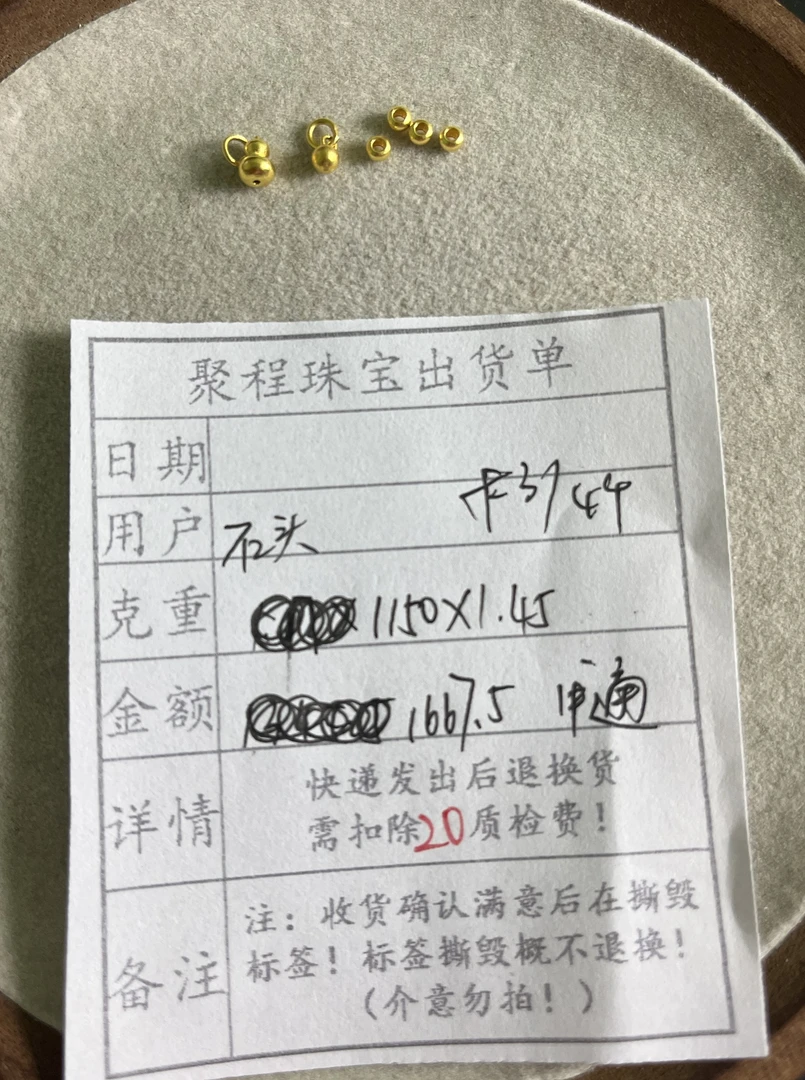 聚程珠宝出货单
日期
用户 石头 卡3744
克重 1150X1.45
金额 1667.5 申通
详情 快递发出后退换货
需扣除20质检费！
备注 注：收货确认满意后在撕毁
标签！标签撕毁概不退换！
（介意勿拍！）